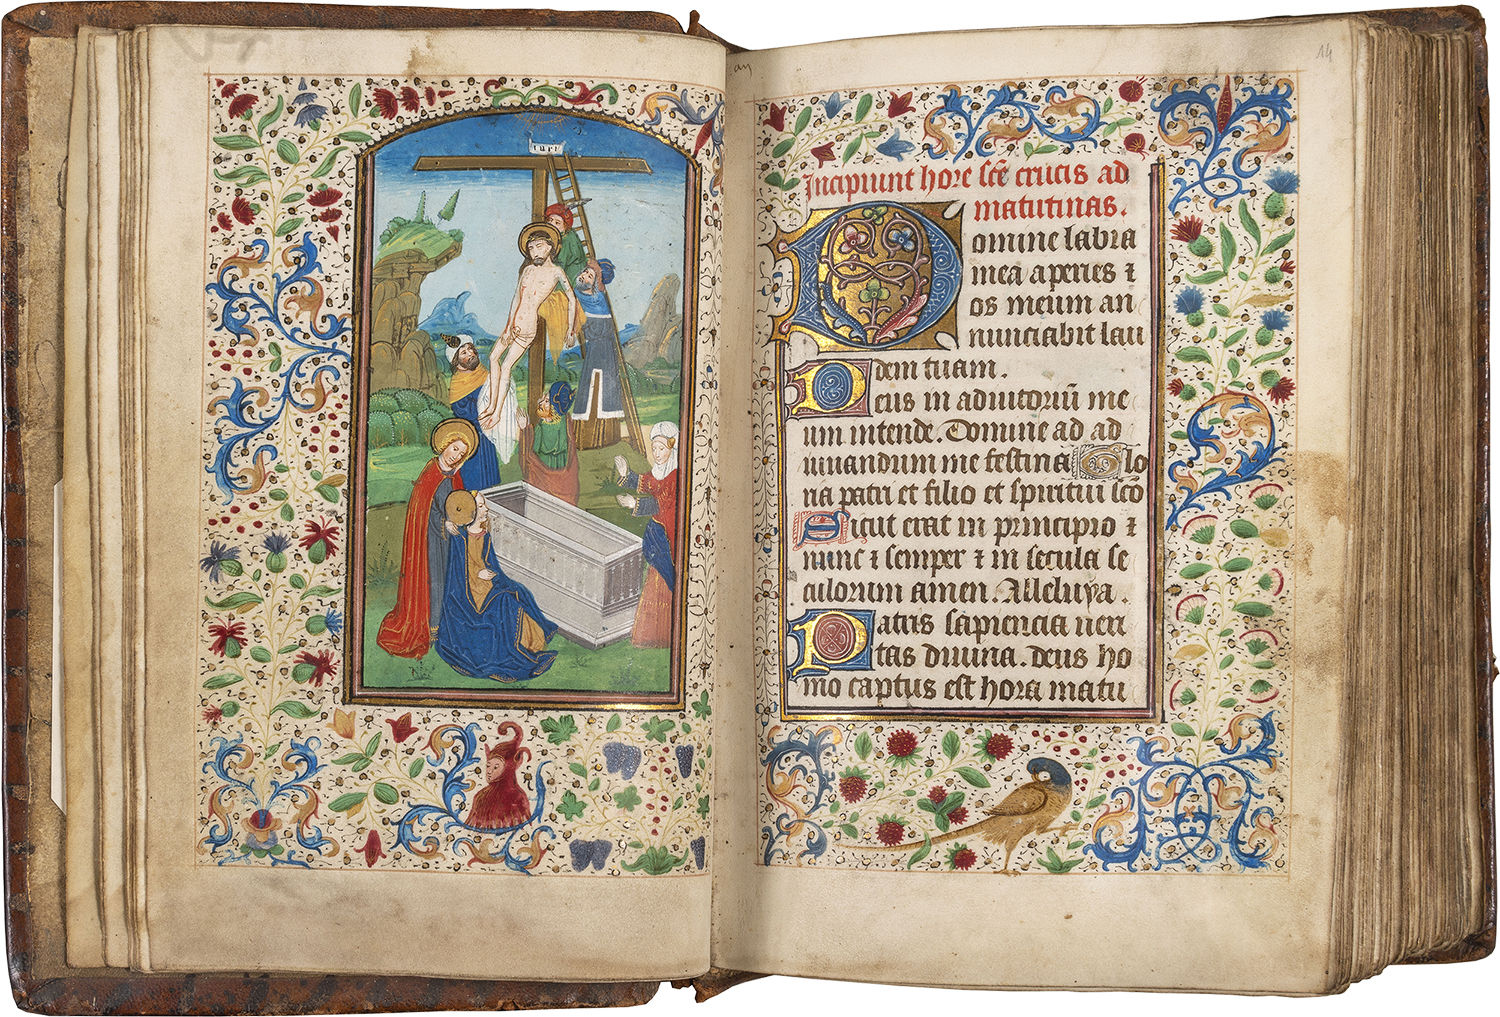 14
Incipiunt hore scē crucis ad
matutinas.
Domine labia
mea aperies ⁊
os meum an
nunciabit lau
dem tuam.
Deus in adiutoriū me
um intende. Domine ad ad
iuuandum me festina Glo
ria patri et filio et spiritui scō
Sicut erat in principio ⁊
nunc ⁊ semper ⁊ in secula se
culorum amen. Alleluya.
Patris sapiencia veri
tas diuina. deus ho
mo captus est hora matu